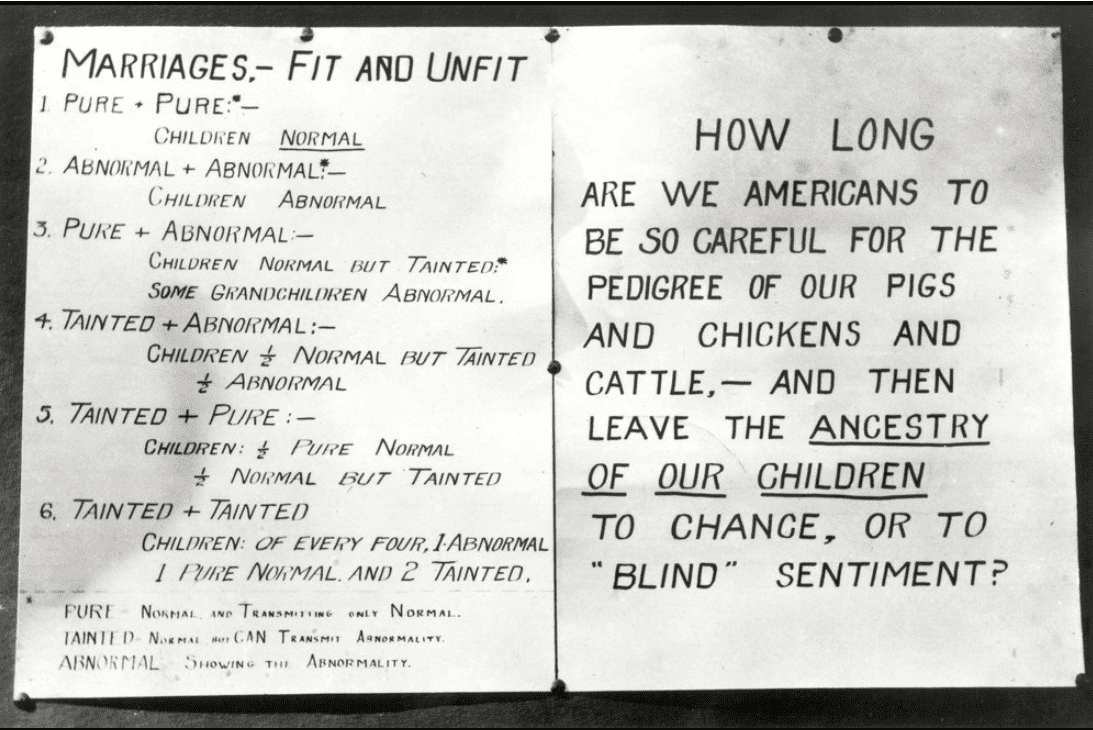 MARRIAGES.- FIT AND UNFIT
1. PURE + PURE:*—
CHILDREN NORMAL
2. ABNORMAL + ABNORMAL:*—
CHILDREN ABNORMAL
3. PURE + ABNORMAL:—
CHILDREN NORMAL BUT TAINTED:*
SOME GRANDCHILDREN ABNORMAL.
4. TAINTED + ABNORMAL:—
CHILDREN ½ NORMAL BUT TAINTED
½ ABNORMAL
5. TAINTED + PURE:—
CHILDREN: ½ PURE NORMAL
½ NORMAL BUT TAINTED
6. TAINTED + TAINTED
CHILDREN: OF EVERY FOUR, 1 ABNORMAL
1 PURE NORMAL. AND 2 TAINTED.
* PURE - NORMAL AND TRANSMITTING ONLY NORMAL.
TAINTED- NORMAL BUT CAN TRANSMIT ABNORMALITY.
ABNORMAL SHOWING THE ABNORMALITY.
HOW LONG
ARE WE AMERICANS TO
BE SO CAREFUL FOR THE
PEDIGREE OF OUR PIGS
AND CHICKENS AND
CATTLE,— AND THEN
LEAVE THE ANCESTRY
OF OUR CHILDREN
TO CHANCE, OR TO
"BLIND" SENTIMENT?